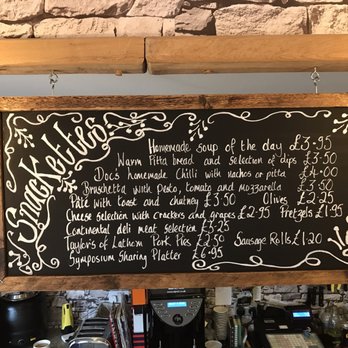 Snackettes
Homemade soup of the day £3-95
Warm Pitta bread and selection of dips £3-50
Doc's homemade Chilli with nachos or pitta £4-00
Bruschetta with pesto, tomato and mozzarella £3-50
Pâté with toast and chutney £3-50 Olives £2-25
Cheese selection with crackers and grapes £2-95 Pretzels £1.95
Continental deli meat selection £3-25
Taylor's of Lathom Pork Pies £2.50 Sausage Rolls £1.20
Symposium Sharing Platter £6-95